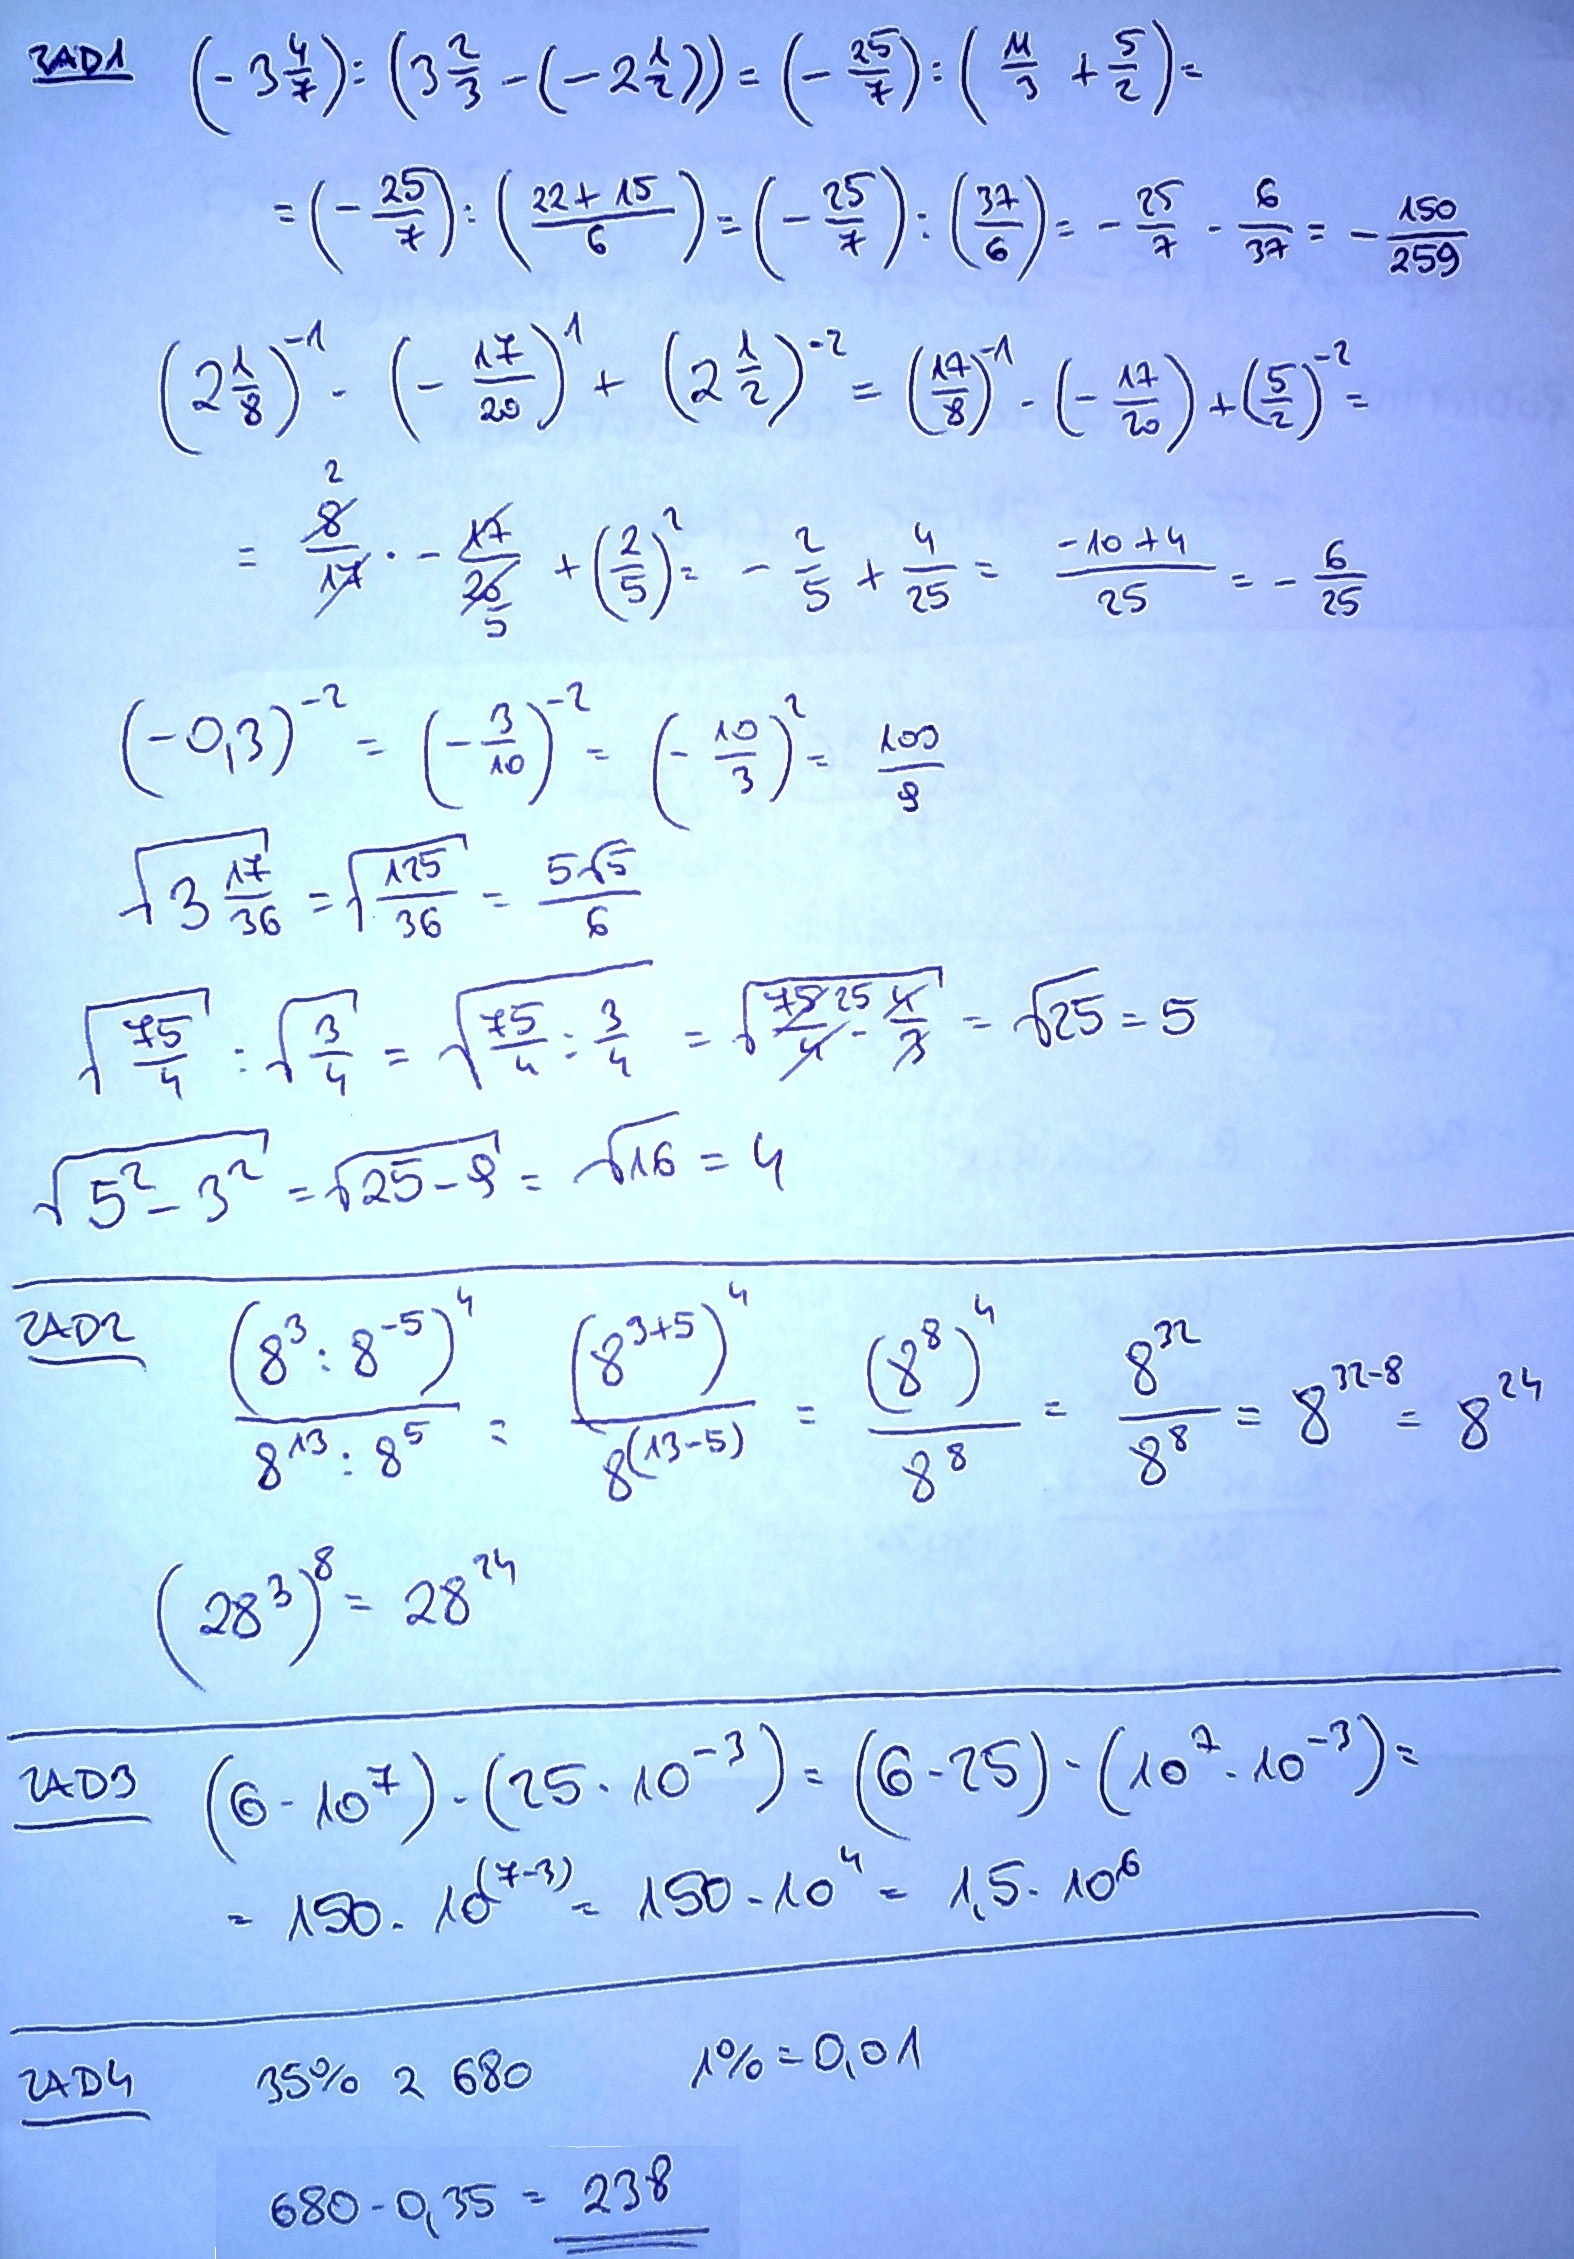 ZAD1 (-3 4/7) : (3 2/3 - (-2 1/2)) = (- 25/7) : (11/3 + 5/2) =
= (- 25/7) : ((22+15)/6) = (- 25/7) : (37/6) = - 25/7 · 6/37 = - 150/259
(2 1/8)^-1 · (- 17/20)^1 + (2 1/2)^-2 = (17/8)^-1 · (- 17/20) + (5/2)^-2 =
= 8/17 · - 17/20 + (2/5)^2 = - 2/5 + 4/25 = (-10+4)/25 = - 6/25
(-0,3)^-2 = (- 3/10)^-2 = (- 10/3)^2 = 100/9
√(3 17/36) = √(125/36) = 5√5/6
√(75/4) : √(3/4) = √(75/4 : 3/4) = √(75/4 · 4/3) = √25 = 5
√(5² - 3²) = √(25-9) = √16 = 4
ZAD2 (8^3 : 8^-5)^4 / (8^13 : 8^5) = (8^3+5)^4 / 8^(13-5) = (8^8)^4 / 8^8 = 8^32 / 8^8 = 8^32-8 = 8^24
(28^3)^8 = 28^24
ZAD3 (6·10^7)·(25·10^-3) = (6·25)·(10^7·10^-3) =
= 150·10^(7-3) = 150·10^4 = 1,5·10^6
ZAD4 35% z 680 1% = 0,01
680·0,35 = 238